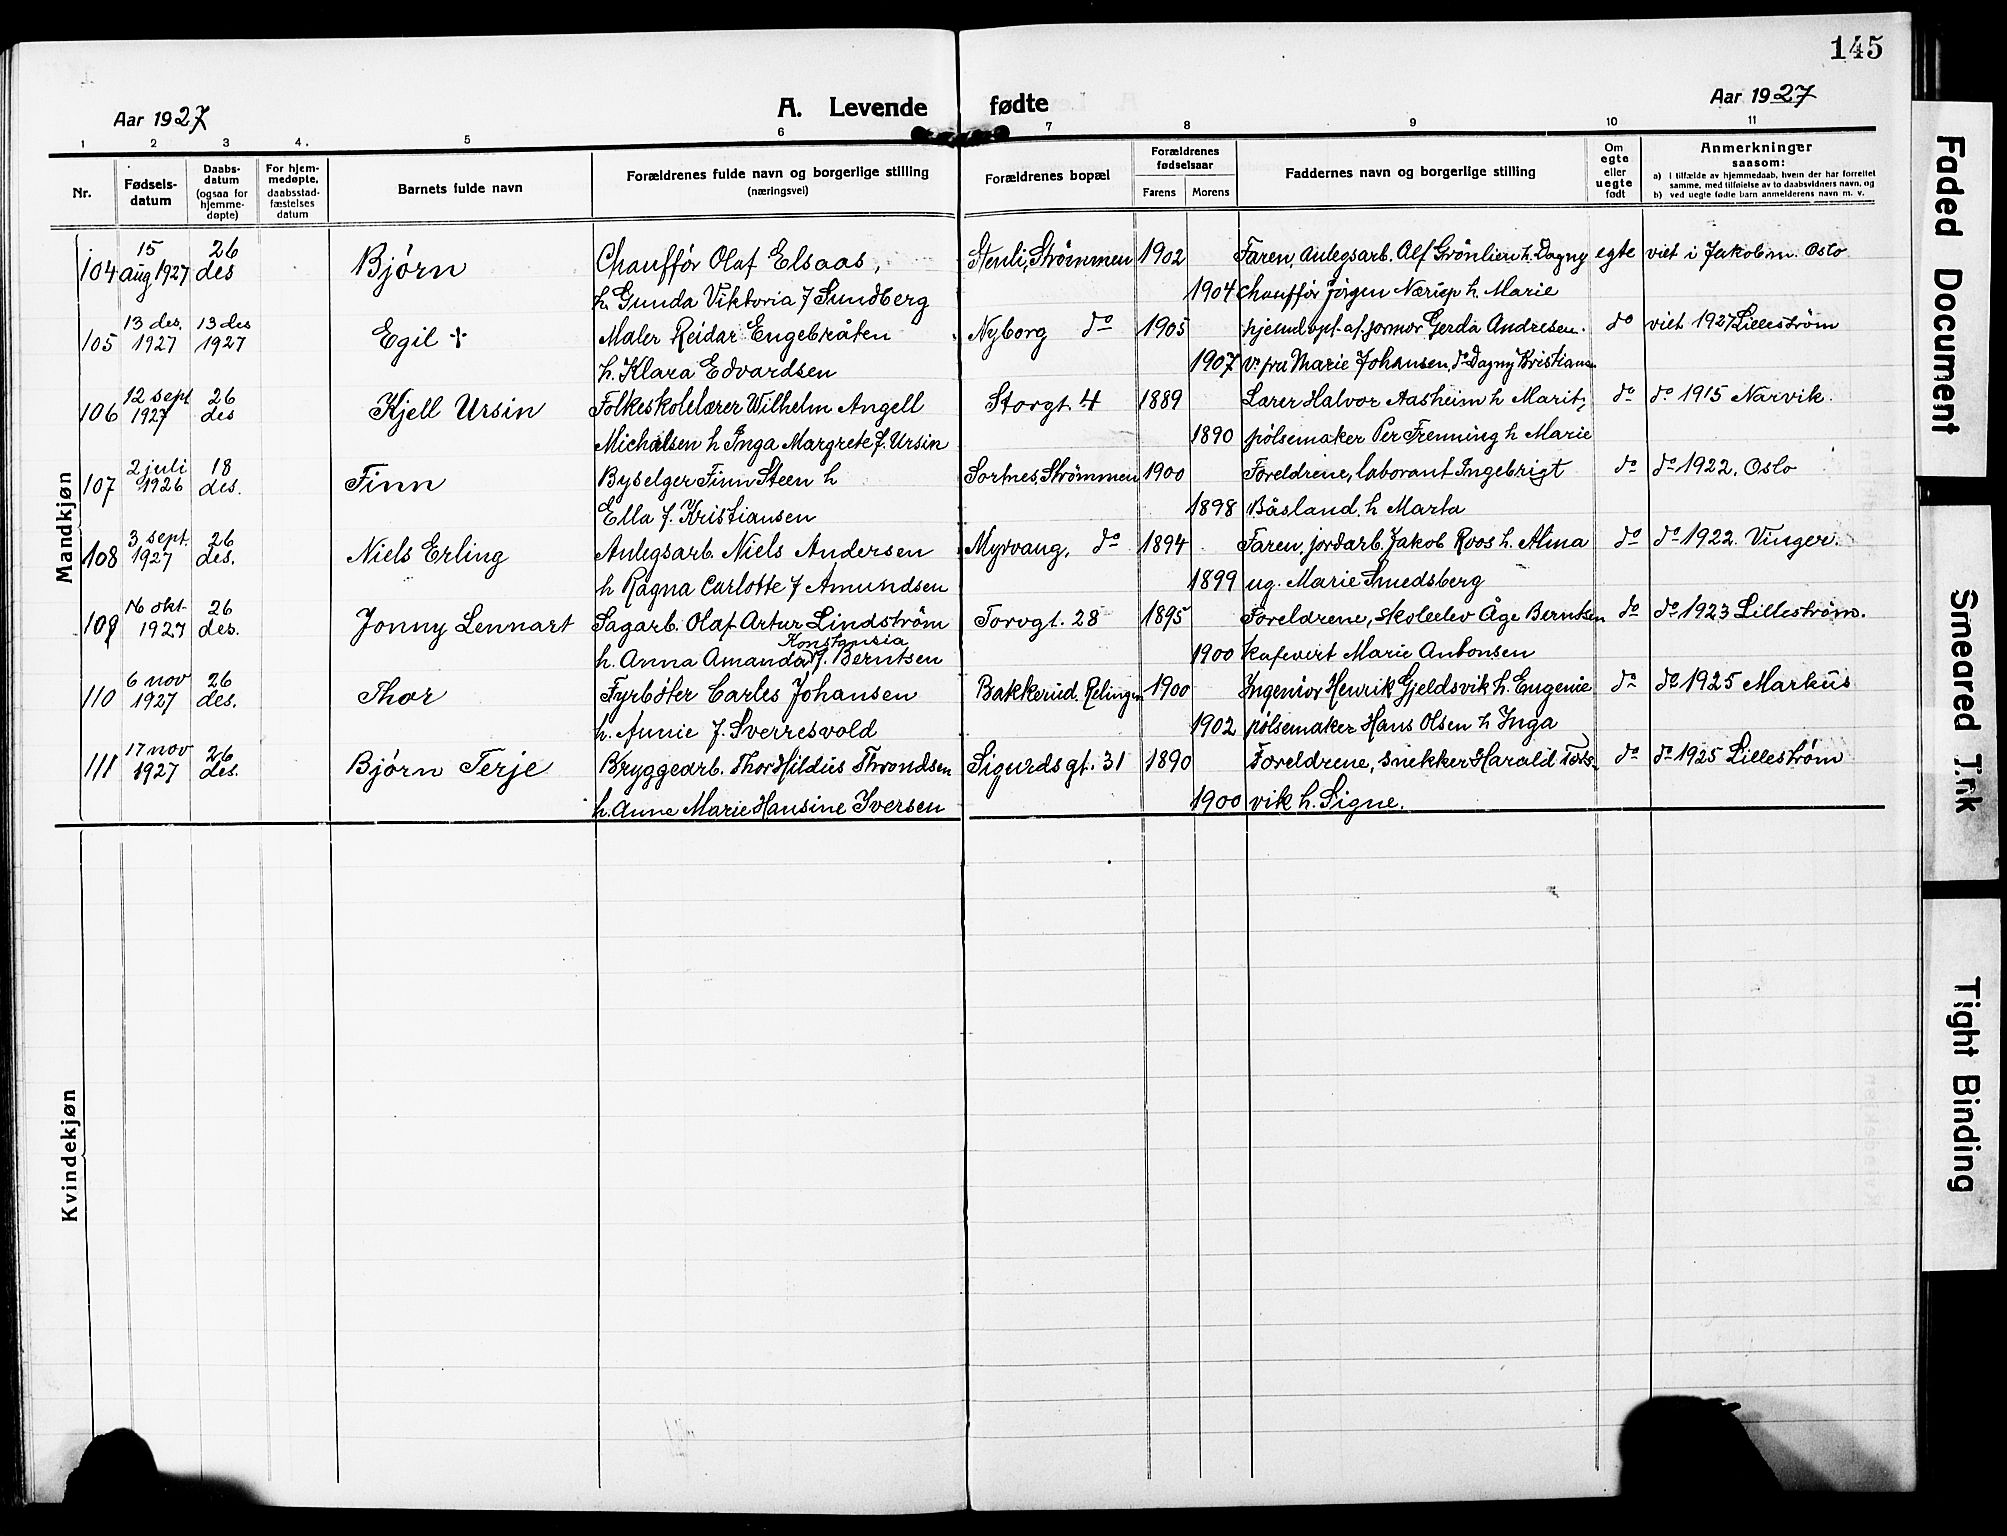 145
Aar 1927
A. Levende fødte
Aar 1927
1 2 3 4. 5 6 7 8 9 10 11
Nr.
Fødsels-
datum
Daabs-
datum
(ogsaa for
hjemme-
døpte)
For hjem-
medøpte,
daabsstad-
fæstelses
datum
Barnets fulde navn
Forældrenes fulde navn og borgerlige stilling
(næringsvei)
Forældrenes bopæl
Forældrenes
fødselsaar
Farens Morens
Faddernes navn og borgerlige stilling
Om
egte
eller
uegte
født
Anmerkninger
saasom:
a) i tilfælde av hjemmedaab, hvem der har forrettet
samme, med tilføielse av to daabsvidners navn, og
b) ved uegte fødte barn anmelderens navn m. v.
Mandkjøn
15 26
104 aug 1927 des Bjørn Chauffør Olaf Elsaas, Stenli, Strømmen 1902 Faren, Anlegsarb. Alf Grönlien h. Dagny egte viet i Jakob m. Oslo
h. Gunda Viktoria f Sundberg 1904 chauffør Jörgen Næriep h. Marie
13 des. 13 des
105 1927 1927 Egil + Maler Reidar Engebråten Nyborg do 1905 hjemdöpt af jormor Gerda Andresen. do viet 1927 Lillestrøm
h. Klara Edvardsen 1907 v. fru Marie Johansen, do Dagny Kristians
12 sept 26
106 1927 des Kjell Ursin Folkeskolelærer Wilhelm Angell Storgt. 4 1889 Lærer Halvor Aasheim h Marit, do do 1915 Narvik.
Michalsen h Inga Margrete f. Ursin 1890 pølsemaker Per Frenning h Marie
2 juli 18
107 1926 des. Finn Byselger Finn Steen h Sortnes, Strømmen 1900 Foreldrene, laborant Ingebrigt do do 1922. Oslo
Ella f. Kristiansen 1898 Båsland. h Marta
3 sept. 26
108 1927 des. Niels Erling Anlegsarb. Niels Andersen Myrvang, do 1894 Faren, jordarb. Jakob Roos h. Alma do do 1922 Vinger.
h Ragna Carlotte f Amundsen 1899 ug. Marie Smedsberg
16 okt. 26
109 1927 des. Jonny Lennart Sagarb. Olaf Artur Lindström Torvgt. 28 1895 Foreldrene, skoleelev Åge Berntsen do do 1923 Lillestrøm.
Konstansia
h. Anna Amanda f. Berntsen 1900 kafevert Marie Antonsen
6 nov 26
110 1927 des. Thor Fyrbøter Carles Johansen Bakkerud. Relingen 1900 Ingeniør Henrik Gjeldsvik h. Eugenie do do 1925 Markus
h. Annie f. Sverresvold 1902 pølsemaker Hans Olsen h Inga
17 nov 26
111 1927 des. Bjørn Terje Bryggearb. Thor Hildus Throndsen Sigurdsgt. 31 1890 Foreldrene, snekker Harald Tors- do do 1925 Lillestrøm
h. Anne Marie Hansine Iversen 1900 vik h. Signe.
Kvindekjøn
Faded Document
Smeared Ink
Tight Binding